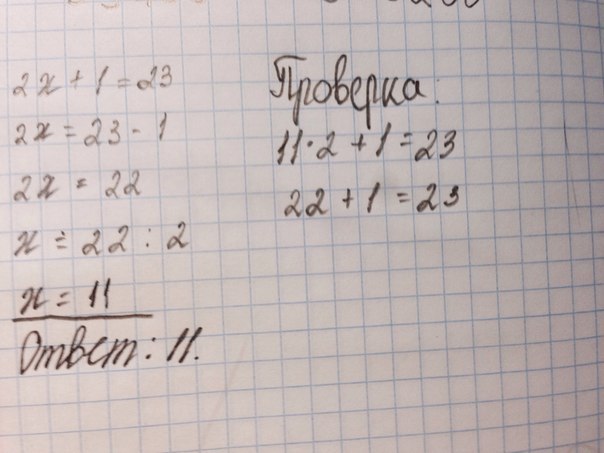 2x + 1 = 23
2x = 23 - 1
2x = 22
x = 22 : 2
x = 11
Ответ: 11.
Проверка:
11·2 + 1 = 23
22 + 1 = 23